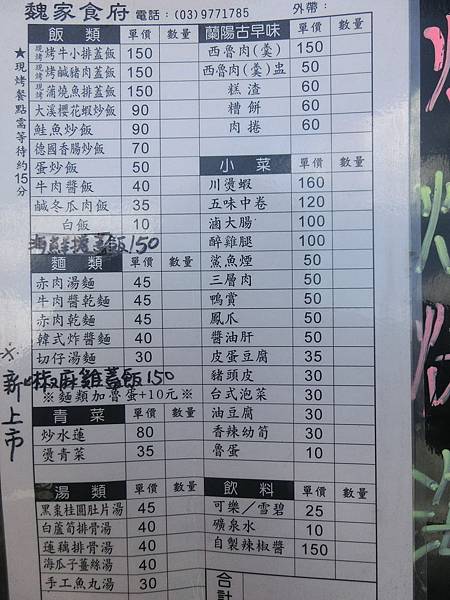 魏家食府 電話:(03)9771785 外帶:
飯類 單價 數量
現烤 烤牛小排蓋飯 150
現烤 烤鹹豬肉蓋飯 150
現烤 蒲燒魚排蓋飯 150
大溪櫻花蝦炒飯 90
鮭魚炒飯 90
德國香腸炒飯 70
蛋炒飯 50
牛肉醬飯 40
鹹冬瓜肉飯 35
白飯 10
蓋飯150
★現烤餐點需等待約15分
麵類 單價 數量
赤肉湯麵 45
牛肉醬乾麵 45
赤肉乾麵 40
韓式炸醬麵 40
切仔湯麵 30
椒麻雞蓋飯150
※新上市
※麵類加魯蛋+10元※
青菜 單價 數量
炒水蓮 80
燙青菜 35
湯類 單價 數量
黑棗桂圓肚片湯 45
白蘆筍排骨湯 40
蓮藕排骨湯 40
海瓜子薑絲湯 40
手工魚丸湯 30
蘭陽古早味 單價 數量
西魯肉(羹) 150
西魯肉(羹)盅 50
糕渣 60
糟餅 60
肉捲 60
小菜 單價 數量
川燙蝦 160
五味中卷 120
滷大腸 100
醉雞腿 100
鯊魚煙 50
三層肉 50
鴨賞 50
鳳爪 50
醬油肝 50
皮蛋豆腐 35
豬頭皮 30
台式泡菜 30
油豆腐 30
香辣幼筍 30
魯蛋 10
飲料 單價 數量
可樂/雪碧 25
礦泉水 10
自製辣椒醬 150
合計